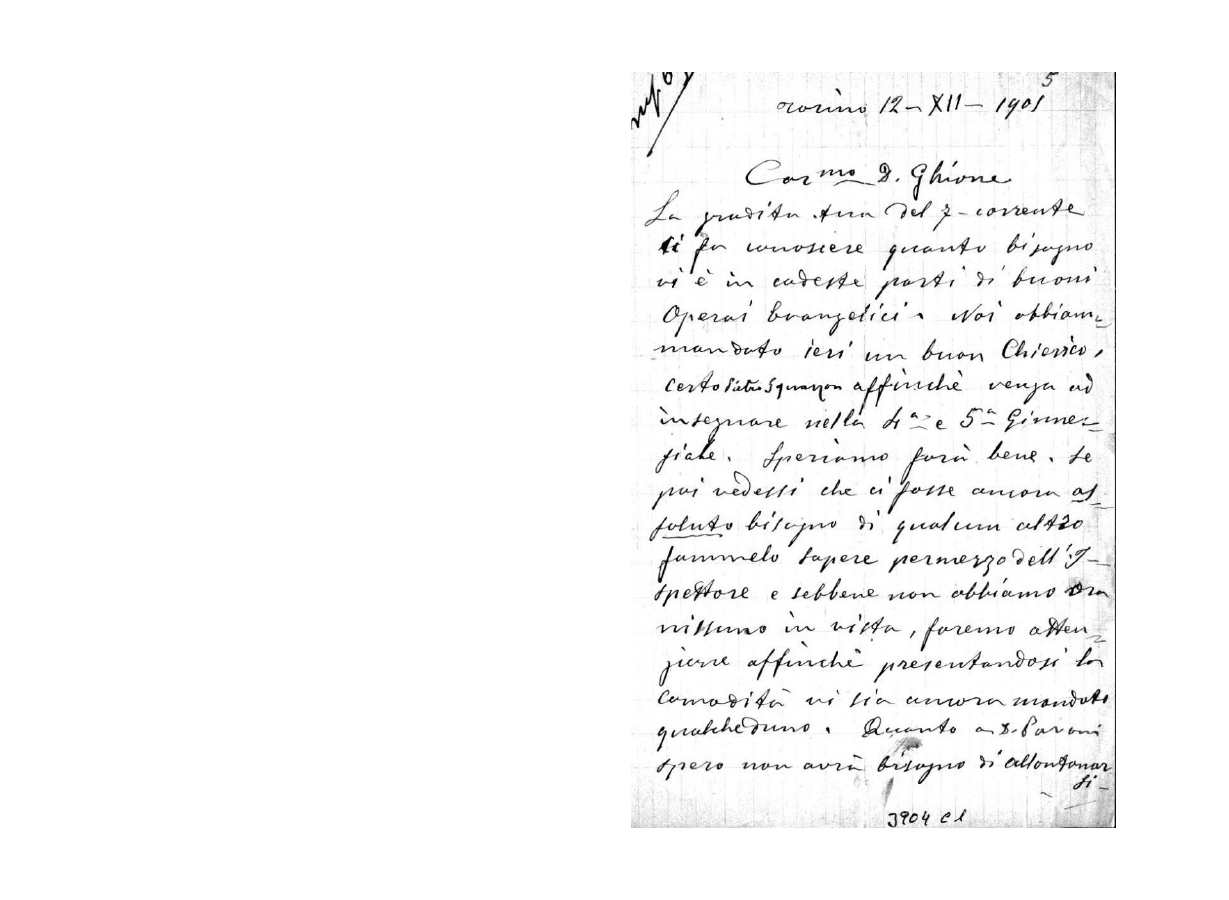 5
Torino 12 - XII - 1901
Car.mo D. Ghione
La gradita tua del 7- corrente
ti fa conoscere quanto bisogno
vi è in codeste parti di buoni
Operai Evangelici. Noi abbiam
mandato ieri un buon Chierico,
certo Pietro affinchè venga ad
insegnare nella 4a e 5a Ginna-
siale. Speriamo farà bene. Se
poi vedessi che ci fosse ancora as-
soluto bisogno di qualcun altro
fammelo sapere per mezzo dell'I-
spettore e sebbene non abbiamo ora
nissuno in vista, faremo atten-
zione affinchè presentandosi la
comodità vi sia ancora mandato
qualcheduno. Quanto a D. Pavoni
spero non avrà bisogno di allontanar
si-
3904 C1